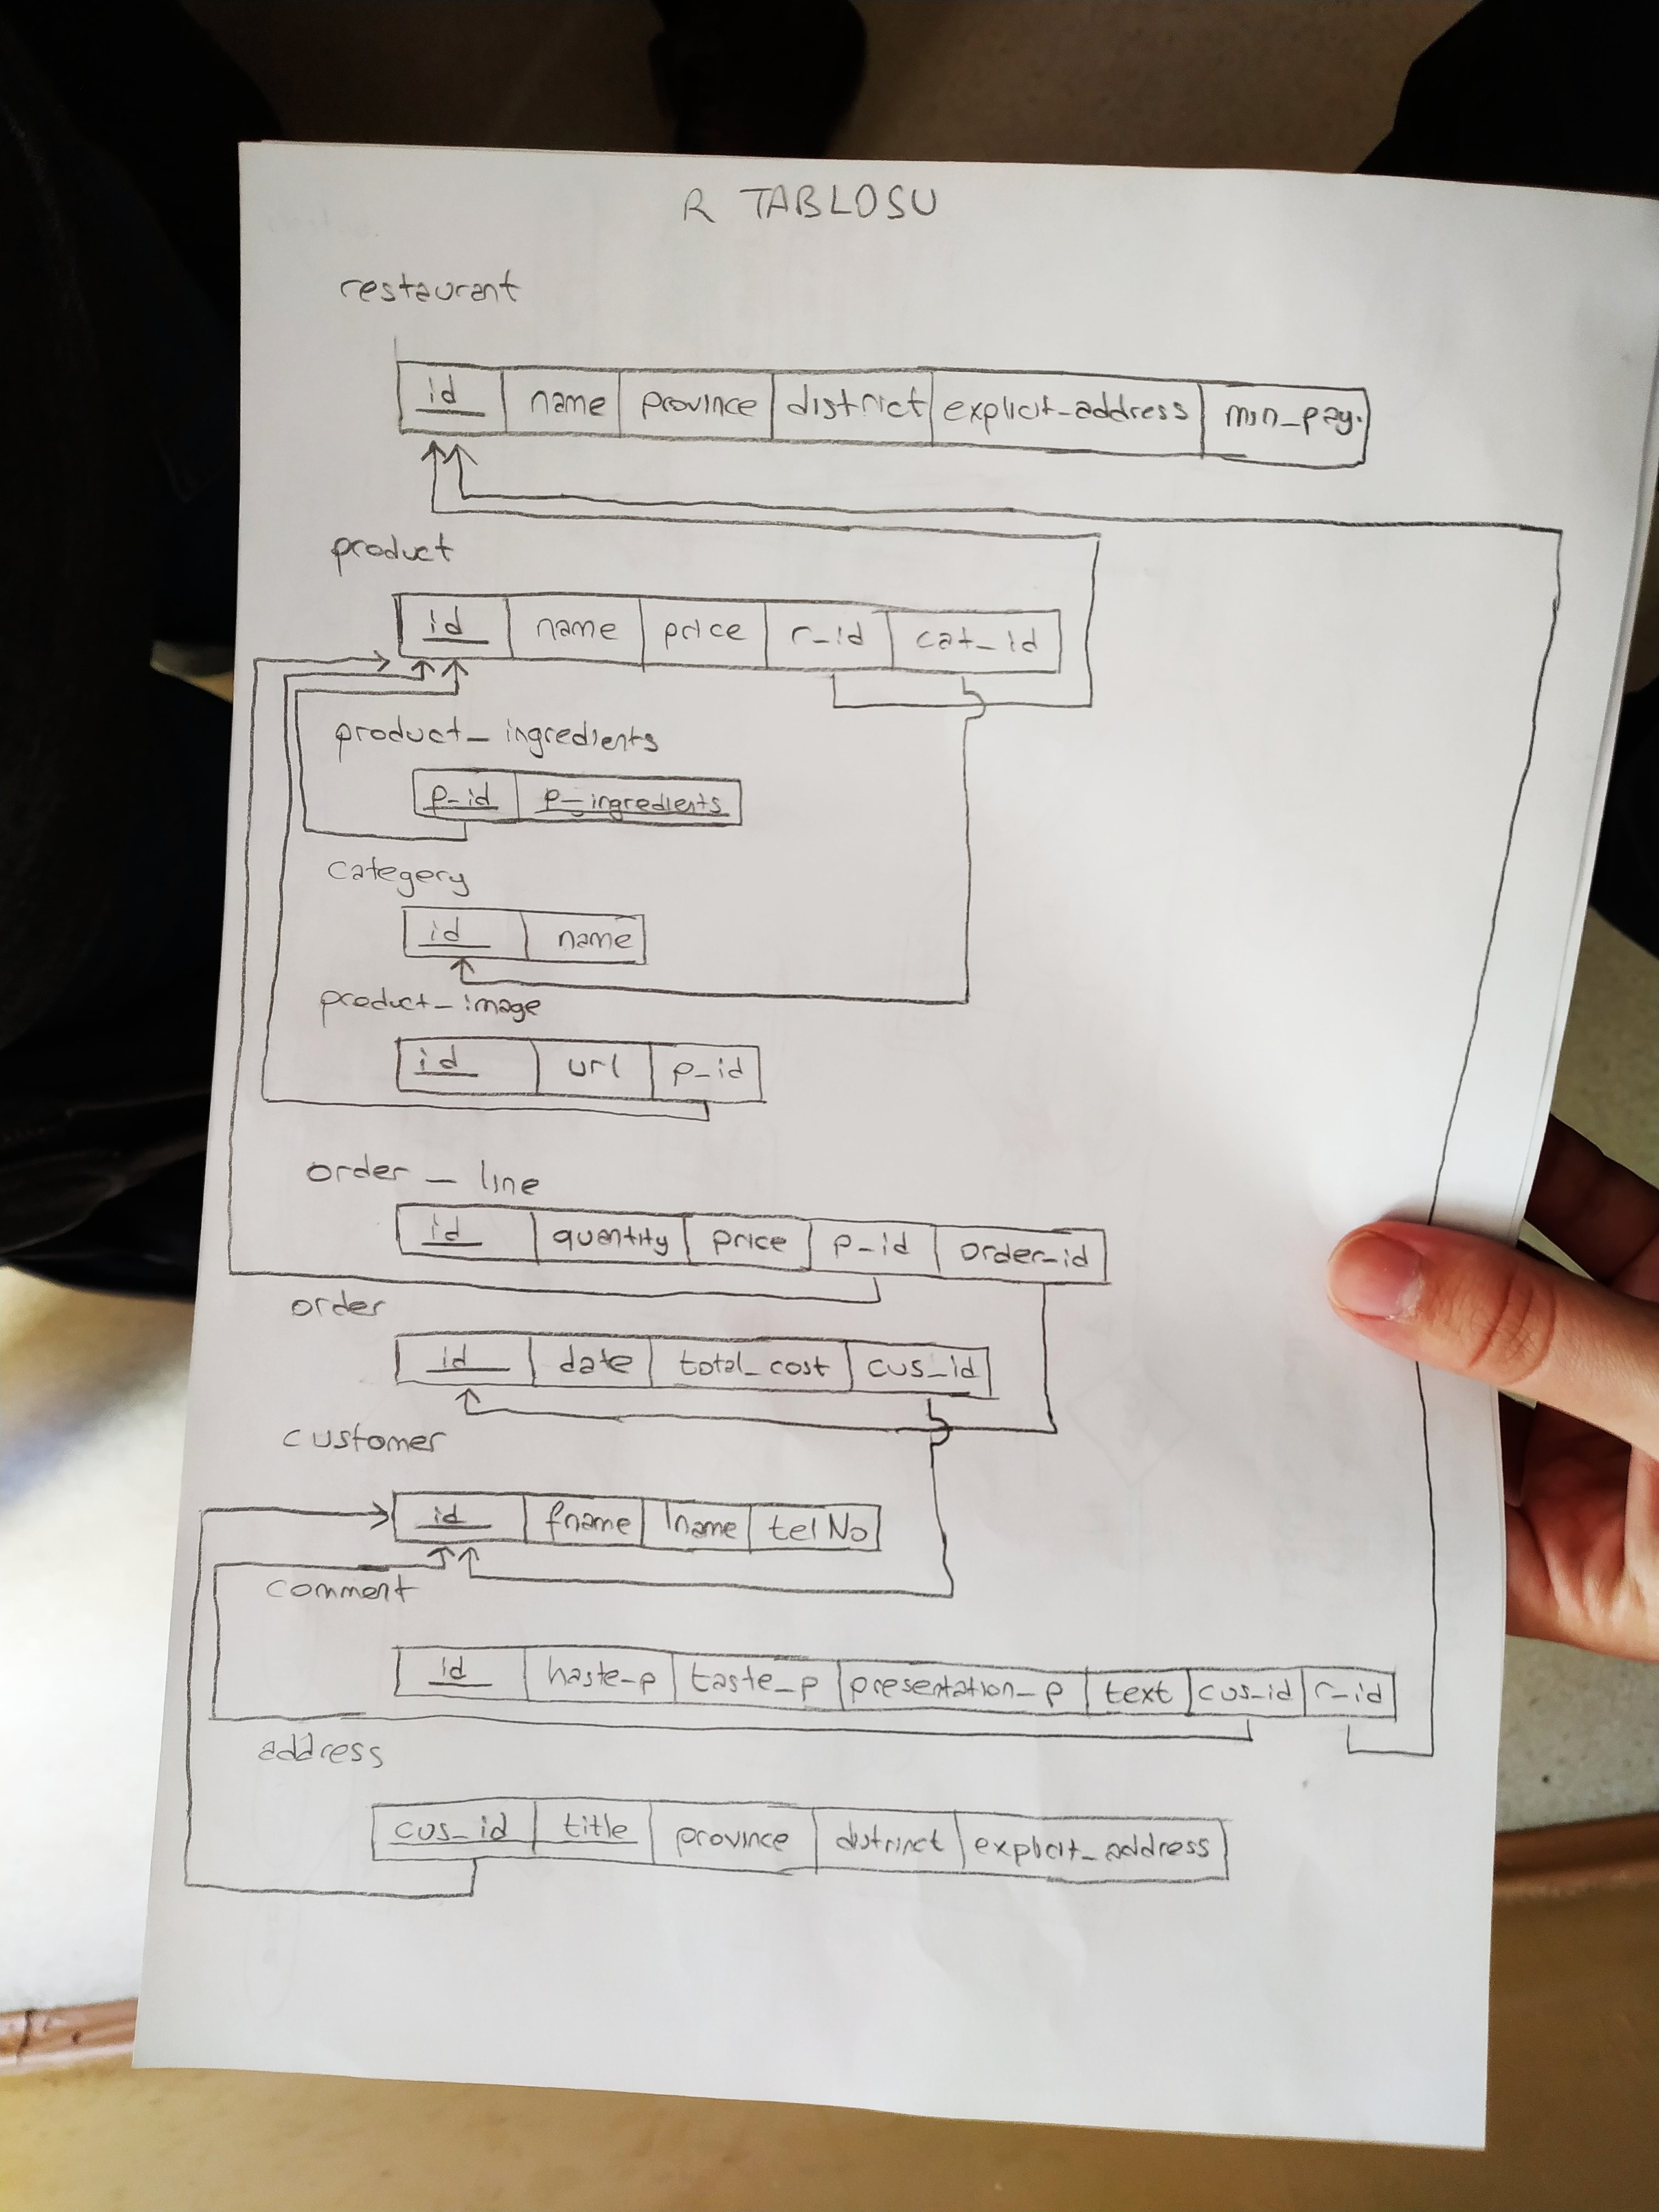 R TABLOSU
restaurant
id name province district explicit_address min_pay.
product
id name price r_id cat_id
product_ingredients
p_id p_ingredients
categery
id name
product_image
id url p_id
order_line
id quantity price p_id order_id
order
id date total_cost cus_id
customer
id fname lname telNo
comment
id haste_p taste_p presentation_p text cus_id r_id
address
cus_id title province distrinct explicit_address